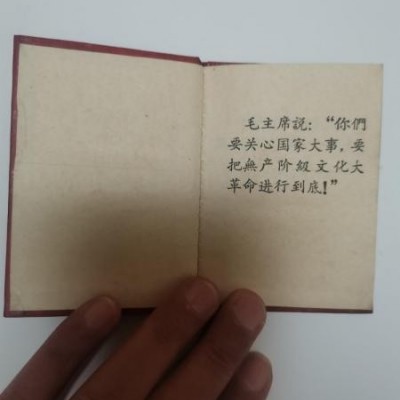 毛主席説：“你們
要关心国家大事，要
把無产阶級文化大
革命进行到底！”